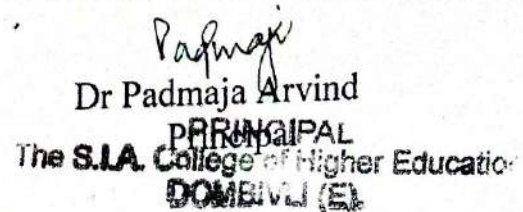 Padmaja
Dr Padmaja Arvind
Principal
PRINCIPAL
The S.I.A. College of Higher Educatio
DOMBIVLI (E)